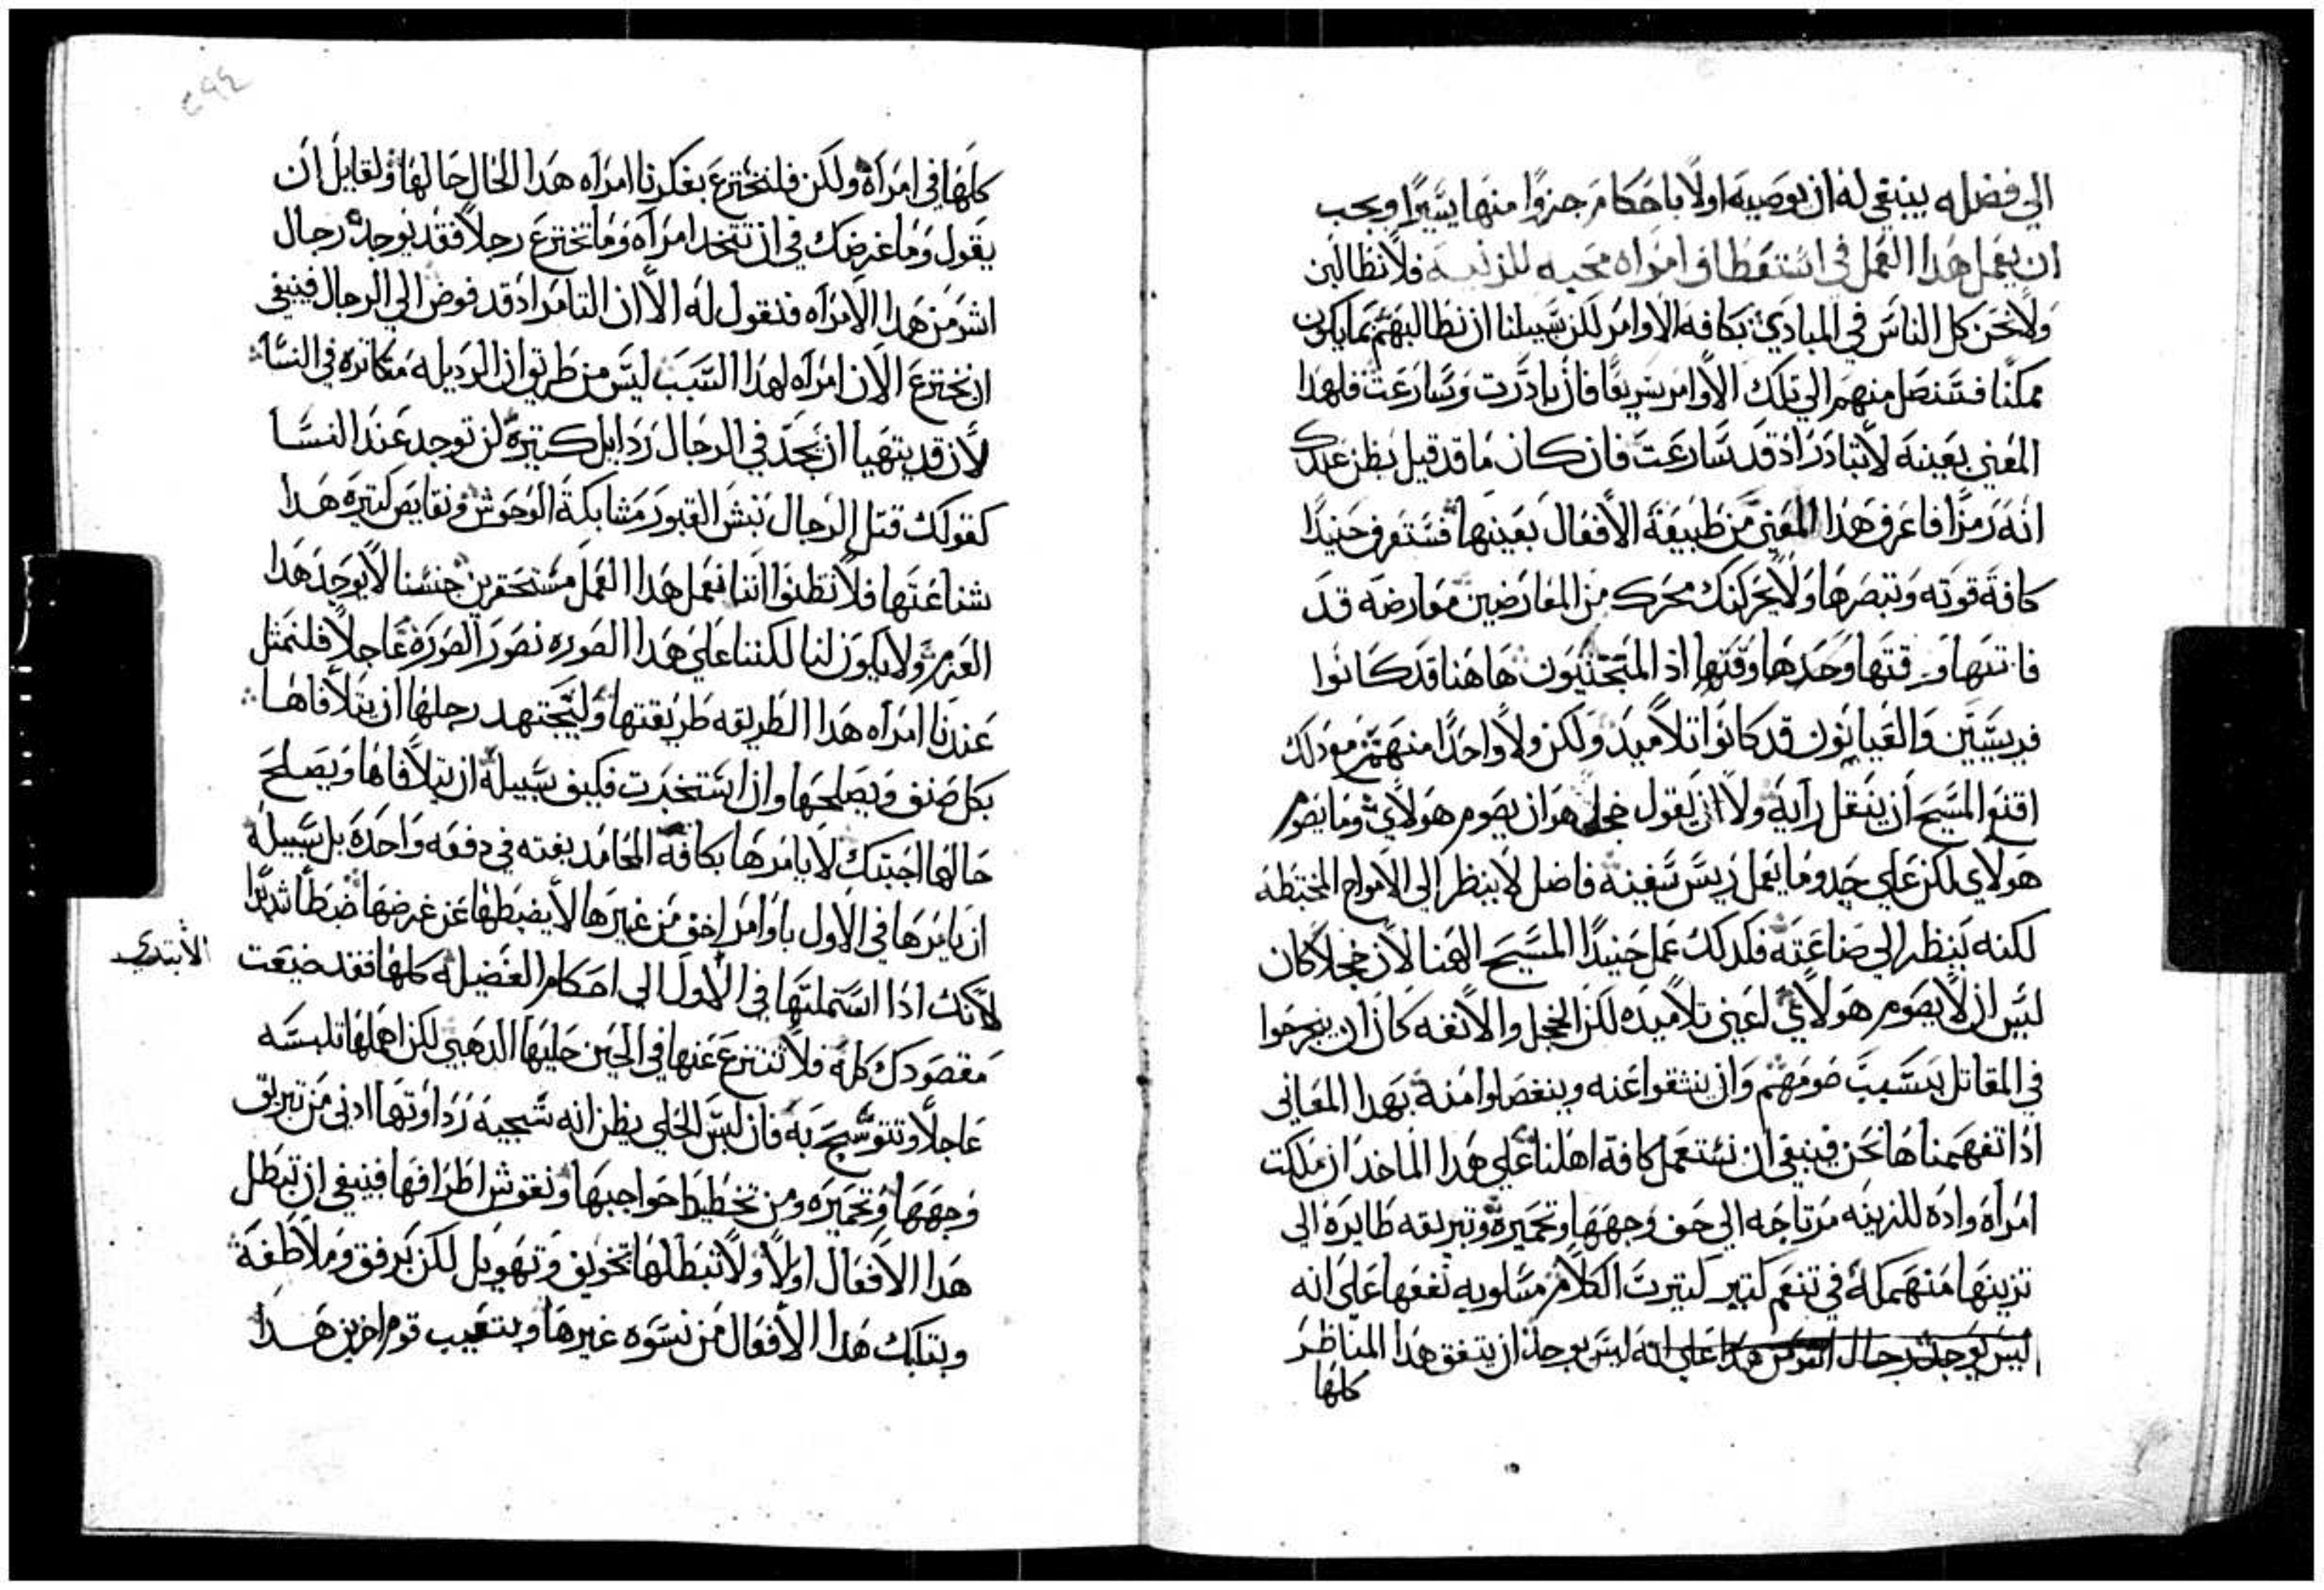 الي فضله ينبغي له ان يوصيه اولًا باحكام جزوًا منها يسيرًا ويجب
ان يعمل هدا العمل في استعطاف امراه محبه للزنيه فلا نطالبن
ولا نحن كل الناس في المبادي بكافه الاوامر لكن سبيلنا ان نطالبهم بما يكون
ممكنًا فسنصل منهم الي تلك الاوامر سريعًا فان بادرت وسارعت فلهدا
المعني بعينه لا تبادر اد قد سارعت فان كان ما قد قيل يظن عندك
انه رمزًا فاعرف هدا المعني من طبيعة الافعال بعينها فستعرف حنيدًا
كافة قوته وتبصرها ولا يحركنك محرك من المعارضين معارضه قد
فاتتها وقتها وحدها وقتها اذ المتحننيون هاهنا قد كانوا
فريسيين والغيابون قد كانوا تلاميد ولكن ولا واحدًا منهم مع دلك
اقنعوا المسيح ان ينقل رايه ولا ان يقول خجل هو ان يصوم هولاي وما يصوم
هولاي لكن علي حدو ما يعمل ريس سفينه فاضل لا ينظر الي الامواج المختبطه
لكنه ينظر الي صناعته فكدلك عمل حنيدًا المسيح الهنا لان خجلا كان
ليس ان لا يصوم هولاي اعني تلاميده لكن الخجل والانفه كان ان ينجرحوا
في المقاتل بسبب صومهم وان ينثقوا عنه وينفصلوا منه بهدا المعاني
اذا تفهمناها نحن فينبغي ان نستعمل كافة اهلنا علي هدا الماخد ان ملكت
امراة وادة للزينه مرتاحه الي حف وجهها وتحميره وتبريقه طايرة الي
تزينها منهمكه في تنعم كتير كتيرت الكلام مساويه نغفها علي انه
ليس يوجد رجال اشر من هدا علي انه ليس يوجد ان يتفق هدا المناظر
كلها
كلها في امراة ولكن فلنخترع بفكرنا امراه هدا الحال حالها ولقايل ان
يقول وما غرضك في ان تتخد امراه وما تخترع رجلًا فقد يوجد رجال
اشر من هدا الامراه فنقول له الا ان التامر اد قد فوض الي الرجال فينبغي
ان نخترع الان امراه لهدا السبب ليس من طريق ان الرديله متكاتره في النسا
لان قد يتهيا ان نجد في الرجال ردايل كتيرة لن توجد عند النسا
كقولك قتل الرجال نبش القبور مشابكة الوحوش ونقايص كتيره هدا
شناعتها فلا تظنوا اننا نعمل هدا العمل مستحقرين جنسنا لا يوجد هدا
العزم ولا يكون لنا لكننا علي هدا الصوره نصور الصورة عاجلًا فلنمثل
عندنا امراه هدا الطريقه طريقتها وليجتهد رجلها ان يتلافاها
بكل صنف ويصلحها وان استخبرت فكيف سبيله ان يتلافاها ويصلح
حالها اجبتك لا يامرها بكافة المحامد بغته في دفعه واحدة بل سبيله
ان يامرها في الاول باوامر اخف من غيرها لا يضبطها عن غرضها ضبطًا شديدًا
لانك اذا استملتها في الاول الي احكام الفضيله كلها فقد ضيعت
الابتدي
مقصودك كله فلا تنتزع عنها في الحين حليها الدهبي لكن اهلها تلبسه
عاجلًا وتتوشح به فان لبس الحلي يظن انه سجيه رداوتها ادني من تبريق
وجهها وتحميره ومن تخطيط حواجبها ونقوش اطرافها فينبغي ان تبطل
هدا الافعال اولًا ولا تبطلها تخويف وتهويل لكن برفق وملاطفة
وبتلبك هدا الافعال من نسوه غيرها وبتعييب قوم اخرين هدا